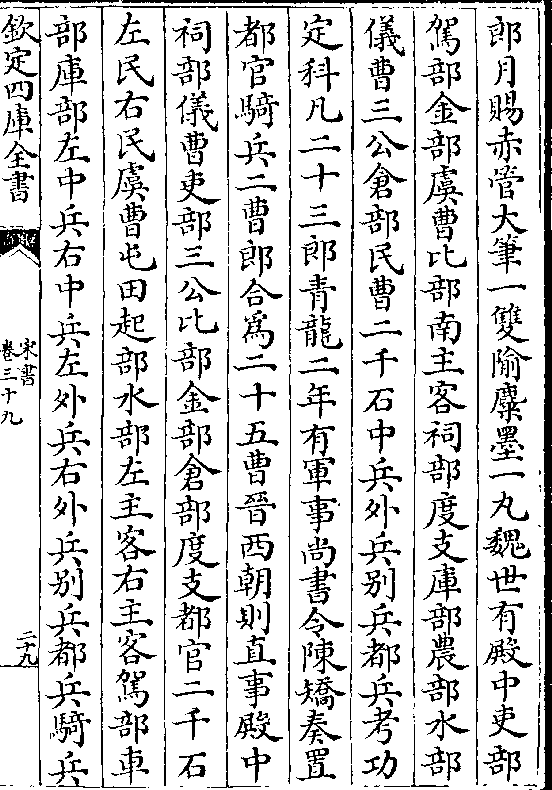 郎月賜赤管大筆一雙隃麋墨一丸魏世有殿中吏部
駕部金部虞曹比部南主客祠部度支庫部農部水部
儀曹三公倉部民曹二千石中兵外兵别兵都兵考功
定科凡二十三郎青龍二年有軍事尚書令陳矯奏置
都官騎兵二曹郎合爲二十五曹晉西朝則直事殿中
祠部儀曹吏部三公比部金部倉部度支都官二千石
左民右民虞曹屯田起部水部左主客右主客駕部車
部庫部左中兵右中兵左外兵右外兵别兵都兵騎兵
欽定四庫全書
宋書
卷三十九
二十九